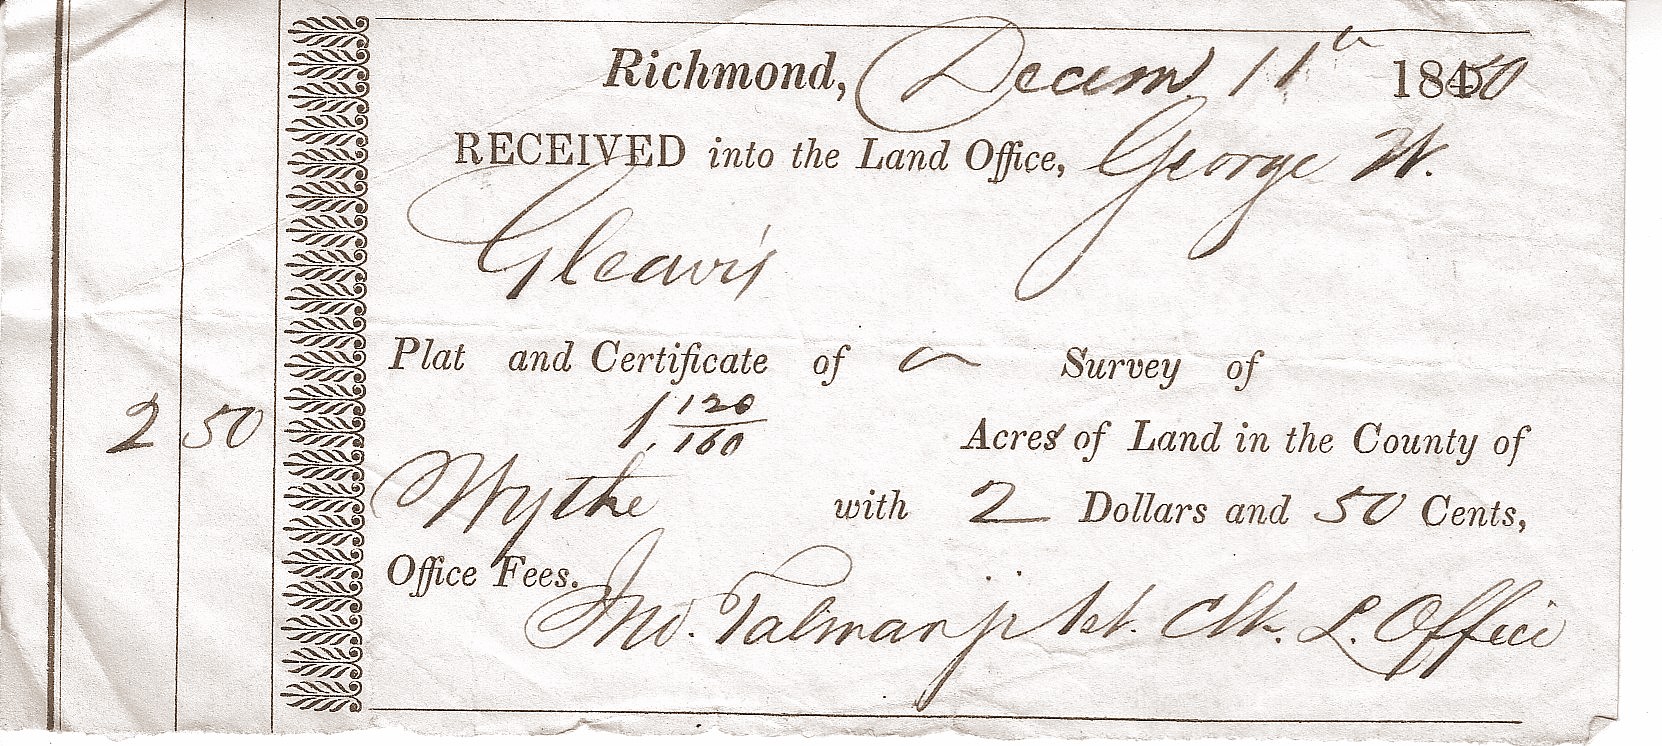 Richmond, Decem 11th 1850
RECEIVED into the Land Office, George W.
Gleaves
Plat and Certificate of a Survey of
1 120/160 Acres of Land in the County of
2 50
Wythe with 2 Dollars and 50 Cents,
Office Fees.
Jno. Talman jr 1st. Clk. L. Office